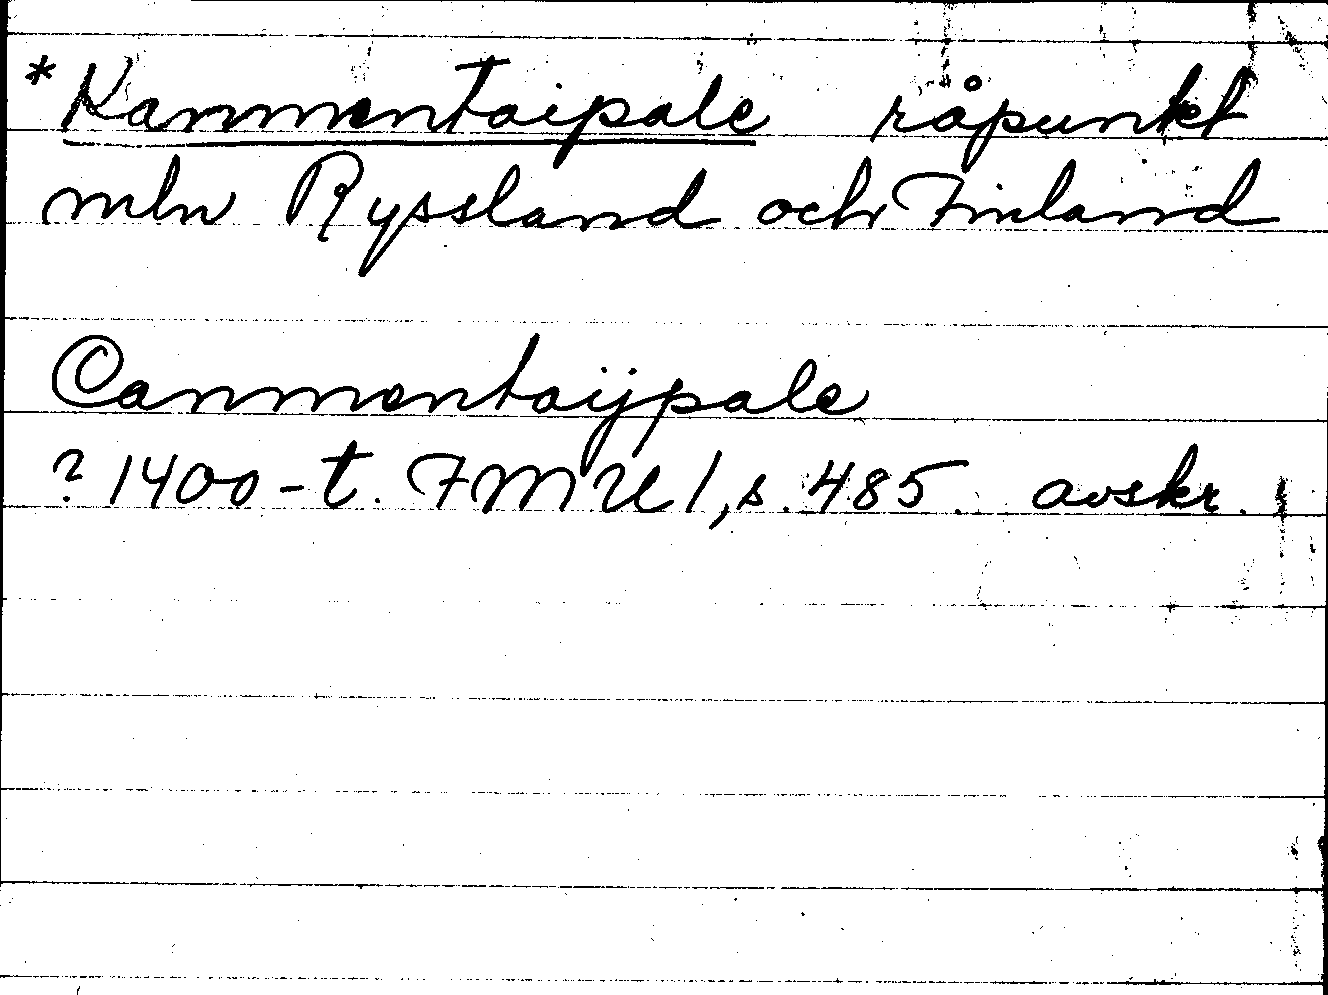 *Kammentaipale råpunkt
mln Ryssland och Finland
Canmentaijpale
? 1400-t. FMU 1, s. 485. avskr.